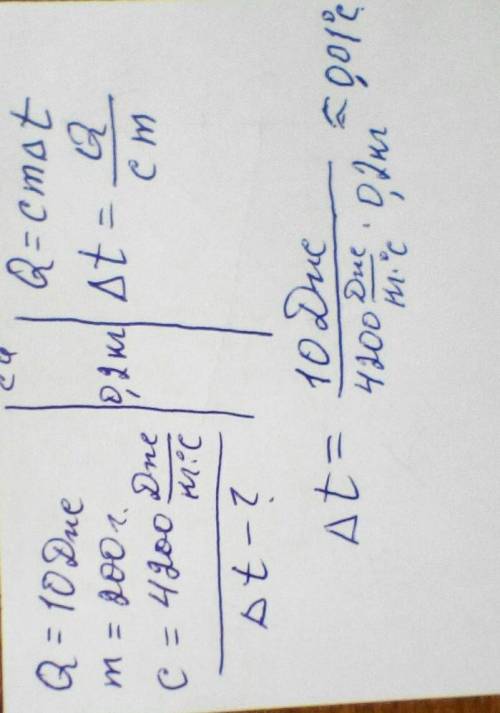 Q = 10 Дж
m = 200 г.
c = 4200 Дж/кг·°C
Δt - ?
СИ
0,2 кг
Q = cmΔt
Δt = Q/cm
Δt = 10 Дж/4200 Дж/кг·°C · 0,2 кг ≈ 0,01°C